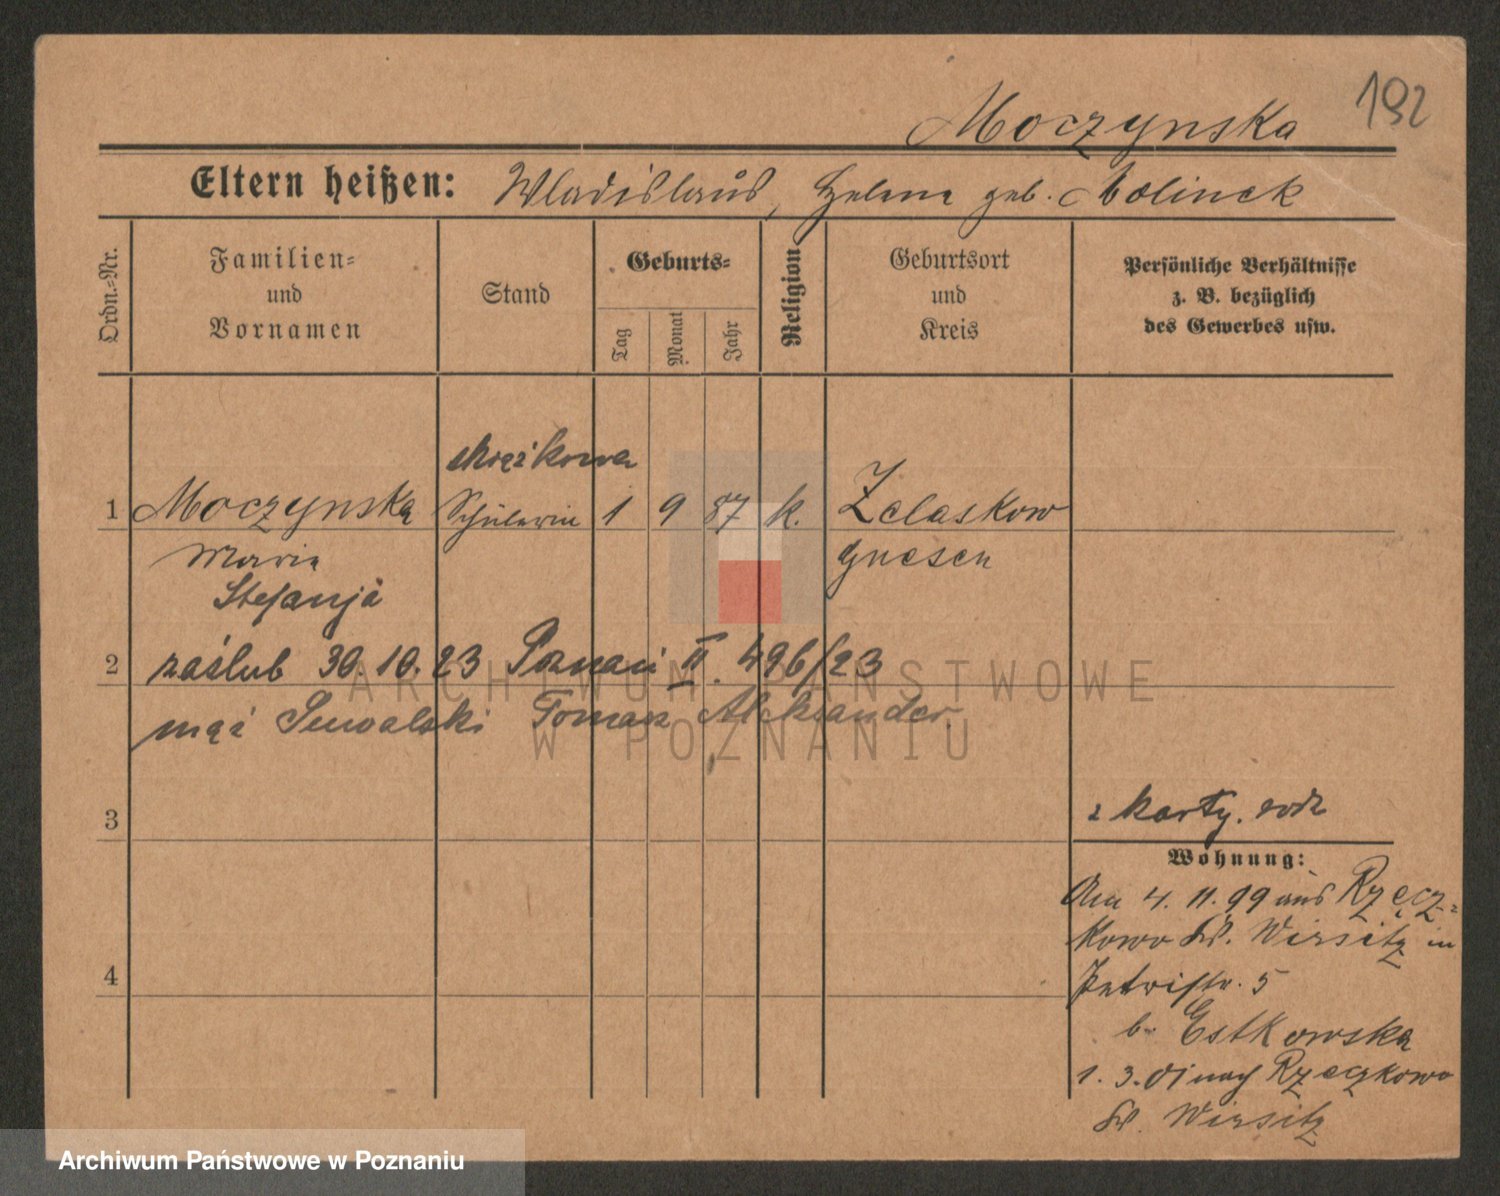 Moczynska 192
Eltern heißen: Wladislaus, Helene geb. Molinek
Ordn.-Nr.
Familien-
und
Vornamen
Stand
Geburts-
Tag
Monat
Jahr
Religion
Geburtsort
und
Kreis
Persönliche Verhältnisse
z. B. bezüglich
des Gewerbes usw.
1 Moczynska Schülerin 1 9 87 k. Zelaskow
Maria Gnesen
Stefanja
2 zaślub 30.10.23 Poznań II. 496/23
mąż Suwalski Tomasz Aleksander.
3
z karty. rodz
Wohnung:
Am 4. 11. 99 aus Rzęcz-
kowo Kr. Wirsitz in
4
Petristr. 5
b. Estkowska
1. 3. 01 nach Rzęczkowo
Kr. Wirsitz
ARCHIWUM PAŃSTWOWE
W POZNANIU
Archiwum Państwowe w Poznaniu